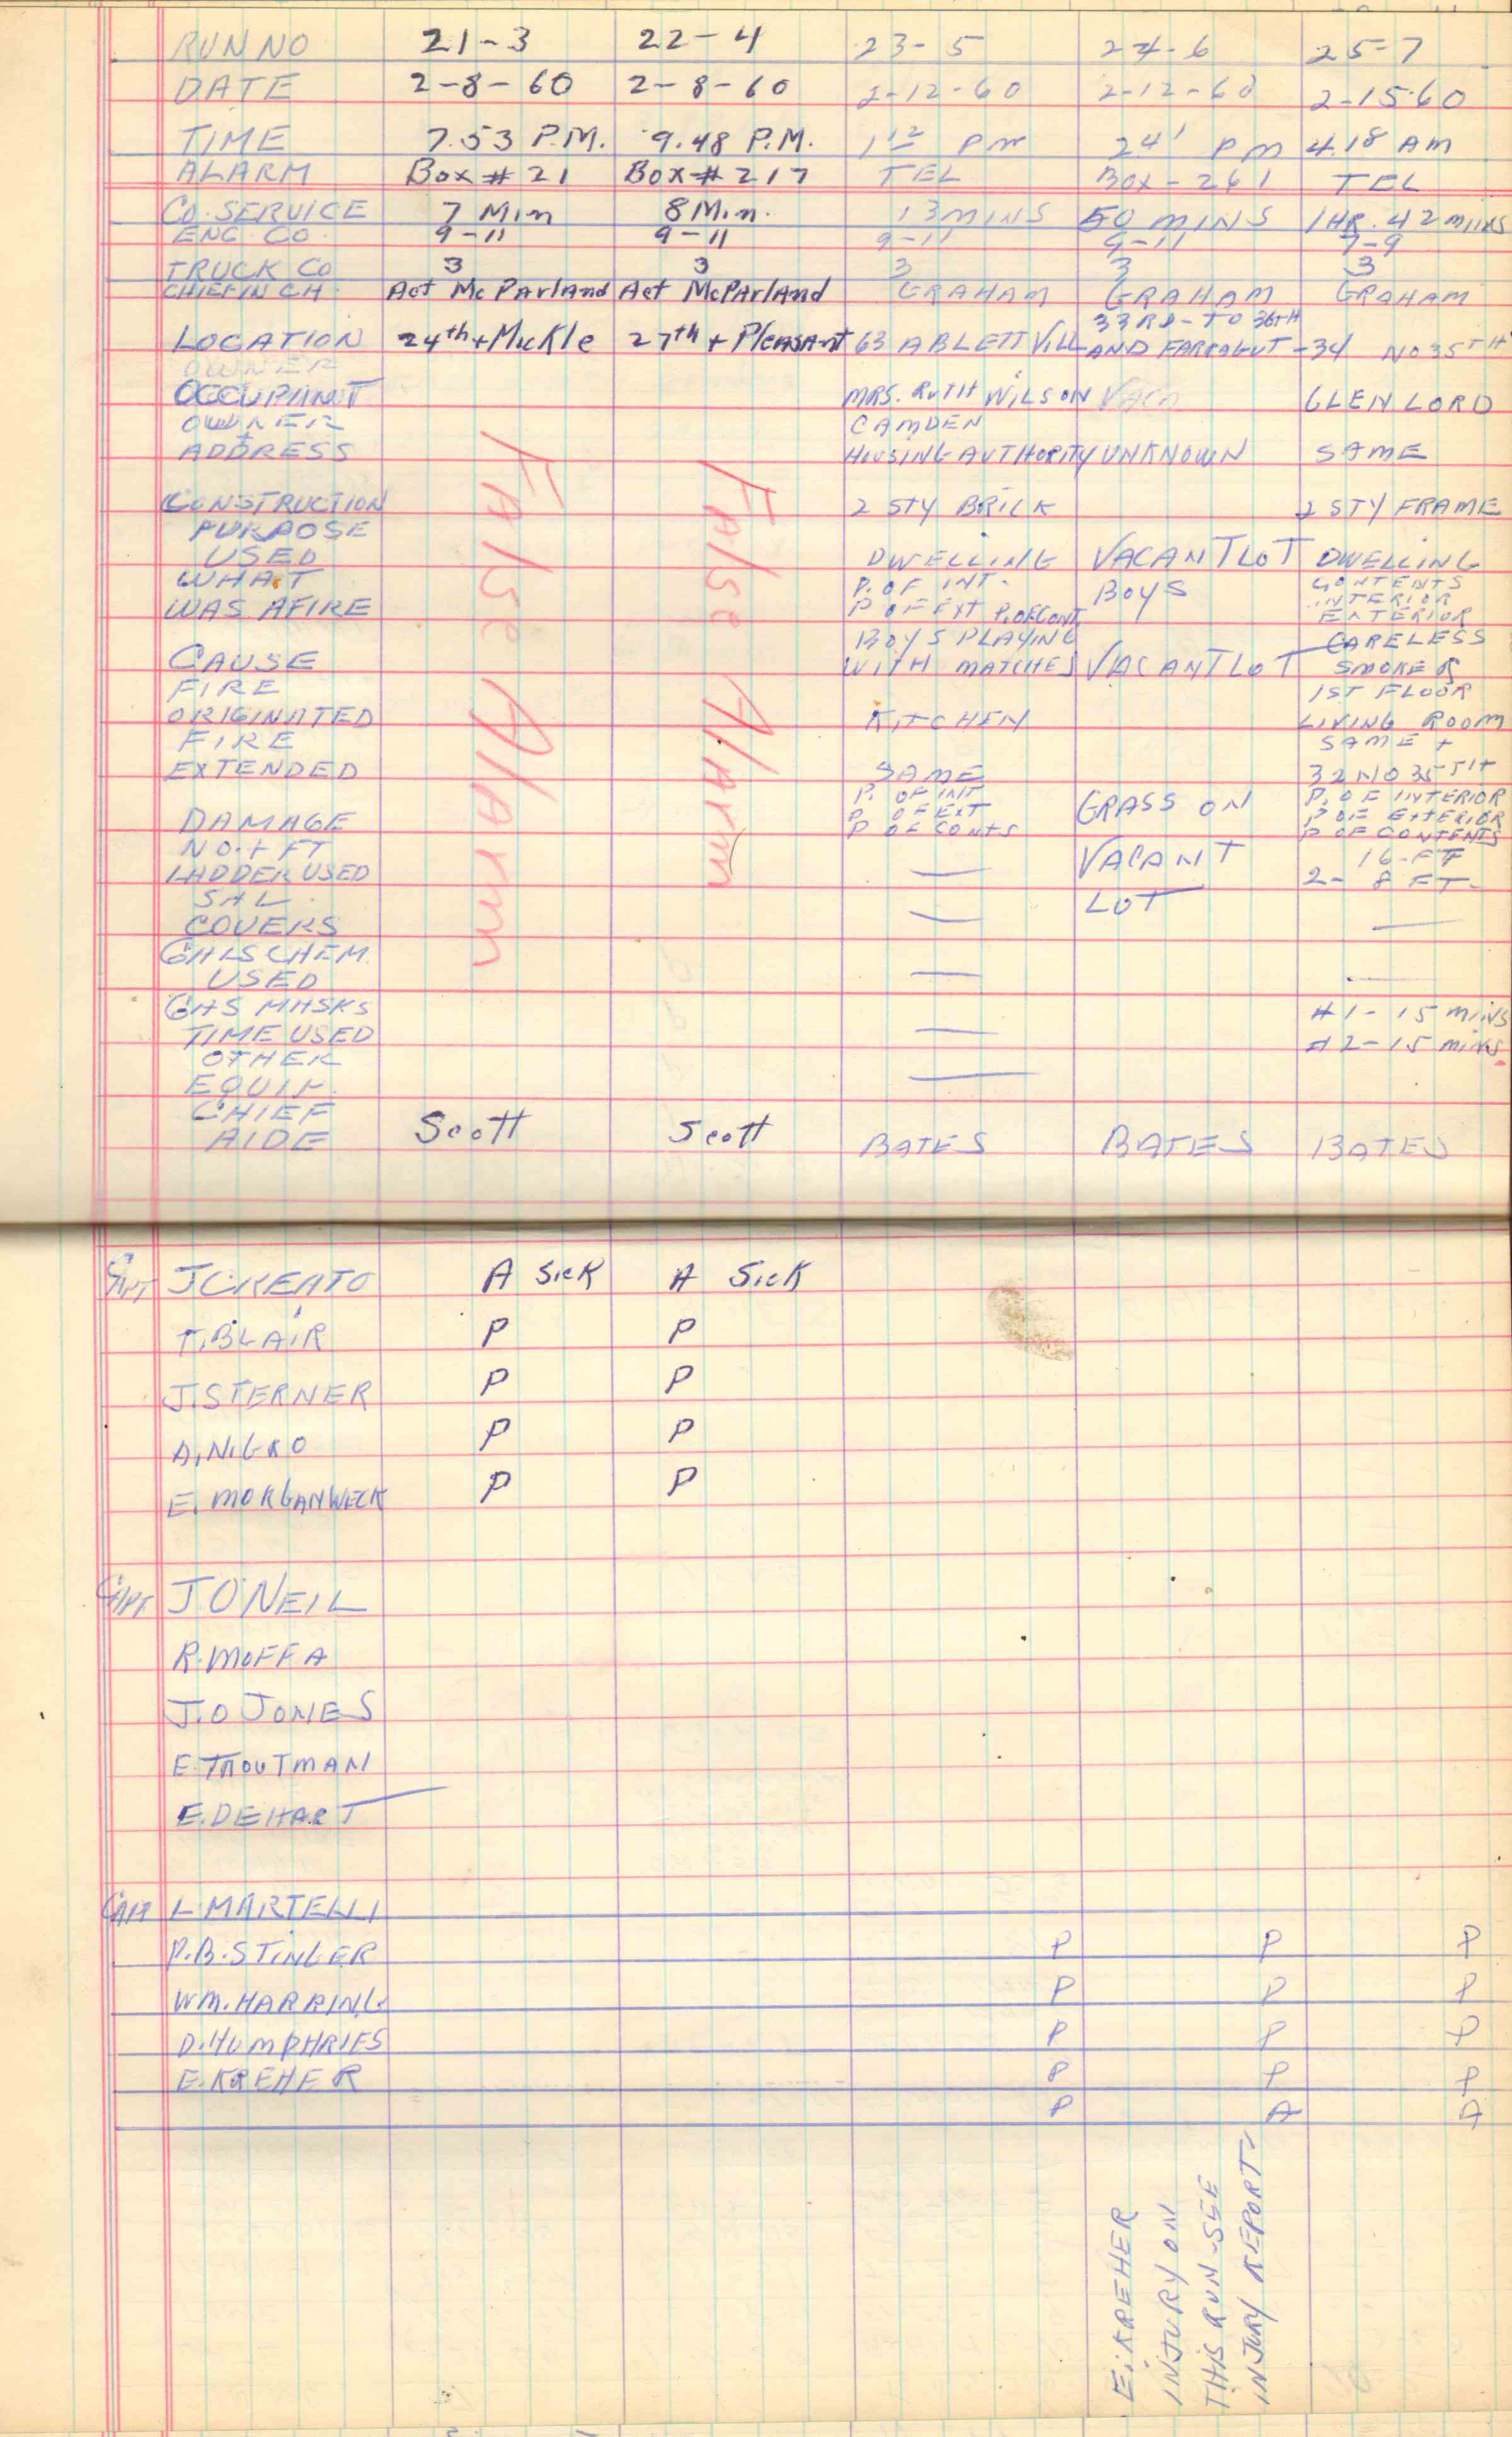 RUN NO 21-3 22-4 23-5 24-6 25-7
DATE 2-8-60 2-8-60 2-12-60 2-12-60 2-15-60
TIME 7.53 P.M. 9.48 P.M. 1 12 PM 2 41 PM 4.18 AM
ALARM Box # 21 Box # 217 TEL BOX-261 TEL
CO. SERVICE 7 Min 8 Min. 13 MINS 50 MINS 1 HR. 42 MINS
ENG CO. 9-11 9-11 9-11 9-11 7-9
TRUCK CO 3 3 3 3 3
CHIEF IN CH. Act McParland Act McParland GRAHAM GRAHAM GRAHAM
33RD - TO 36TH
LOCATION 24th + Mickle 27th + Pleasant 63 ABLETT VILL AND FARRAGUT - 34 NO 35TH
OWNER
OCCUPANT MRS. RUTH WILSON VACA GLEN LORD
OWNER CAMDEN
ADDRESS HOUSING AUTHORITY UNKNOWN SAME
CONSTRUCTION 2 STY BRICK 2 STY FRAME
PURPOSE
USED DWELLING VACANT LOT DWELLING
WHAT P. OF INT. BOYS CONTENTS
INTERIOR
WAS AFIRE P OF EXT P. OF CONT. EXTERIOR
BOYS PLAYING CARELESS
CAUSE WITH MATCHES VACANT LOT SMOKER
FIRE 1ST FLOOR
ORIGINATED KITCHEN LIVING ROOM
FIRE SAME +
EXTENDED SAME 32 NO 35TH
P. OF INT GRASS ON P. OF INTERIOR
DAMAGE P OF EXT P OF EXTERIOR
P OF CONTS P OF CONTENTS
NO. + FT VACANT 16-FT
LADDER USED — 2- 8 FT-
SAL. LOT
COVERS — —
GALS CHEM.
USED — —
GAS MASKS #1-15 MINS
TIME USED — #2-15 MINS
OTHER
EQUIP. —
CHIEF
AIDE Scott Scott BATES BATES BATES
False Alarm
False Alarm
CAPT J CREATO A Sick A Sick
T. BLAIR P P
J. STERNER P P
A. NIGRO P P
E. MORGANWECK P P
CAPT J O'NEIL
R. MOFFA
J. O JONES
E. TROUTMAN
E. DEHART
CAPT L. MARTELLI
P.B. STINGER P P P
WM. HARRING P P P
D. HUMPHRIES P P P
E. KREHER P P P
P A A
E. KREHER
INJURY ON
THIS RUN - SEE
INJURY REPORT